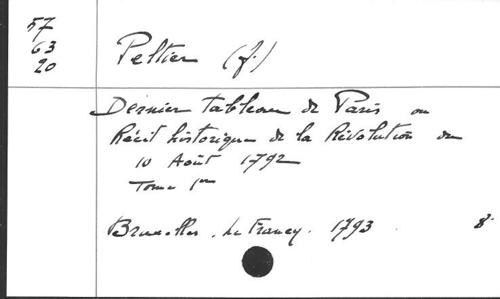 57
63
20
Peltier (J.)
Dernier tableau de Paris ou
Récit historique de la Révolution du
10 Août 1792
Tome 1er
Bruxelles, Le Francq. 1793 8°